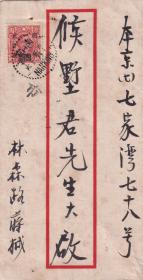 本京西七家灣七十八號
侯墅君先生大啟
林森路蔣緘